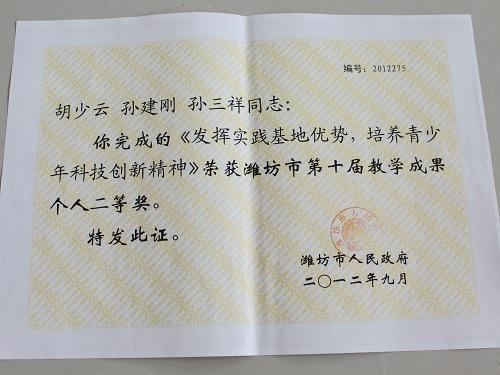 编号：2012275
胡少云 孙建刚 孙三祥同志：
你完成的《发挥实践基地优势，培养青少
年科技创新精神》荣获潍坊市第十届教学成果
个人二等奖。
特发此证。
潍坊市人民政府
二〇一二年九月